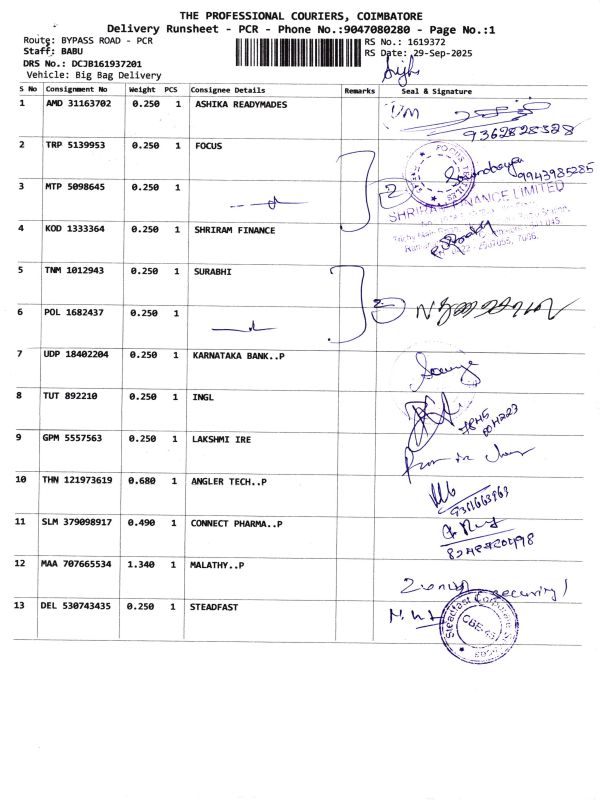 THE PROFESSIONAL COURIERS, COIMBATORE
Delivery Runsheet - PCR - Phone No.:9047080280 - Page No.:1
Route: BYPASS ROAD - PCR
RS No.: 1619372
Staff: BABU
RS Date: 29-Sep-2025
DRS No.: DCJB161937201
Vehicle: Big Bag Delivery
S No Consignment No Weight PCS Consignee Details Remarks Seal & Signature
1 AMD 31163702 0.250 1 ASHIKA READYMADES
9362828328
2 TRP 5139953 0.250 1 FOCUS
9943985285
3 MTP 5098645 0.250 1
2
SHRIRAM FINANCE LIMITED
4 KOD 1333364 0.250 1 SHRIRAM FINANCE
5 TNM 1012943 0.250 1 SURABHI
6 POL 1682437 0.250 1
2
7 UDP 18402204 0.250 1 KARNATAKA BANK..P
8 TUT 892210 0.250 1 INGL
9 GPM 5557563 0.250 1 LAKSHMI IRE
10 THN 121973619 0.680 1 ANGLER TECH..P
11 SLM 379098917 0.490 1 CONNECT PHARMA..P
12 MAA 707665534 1.340 1 MALATHY..P
security
13 DEL 530743435 0.250 1 STEADFAST
Steadfast Corporate